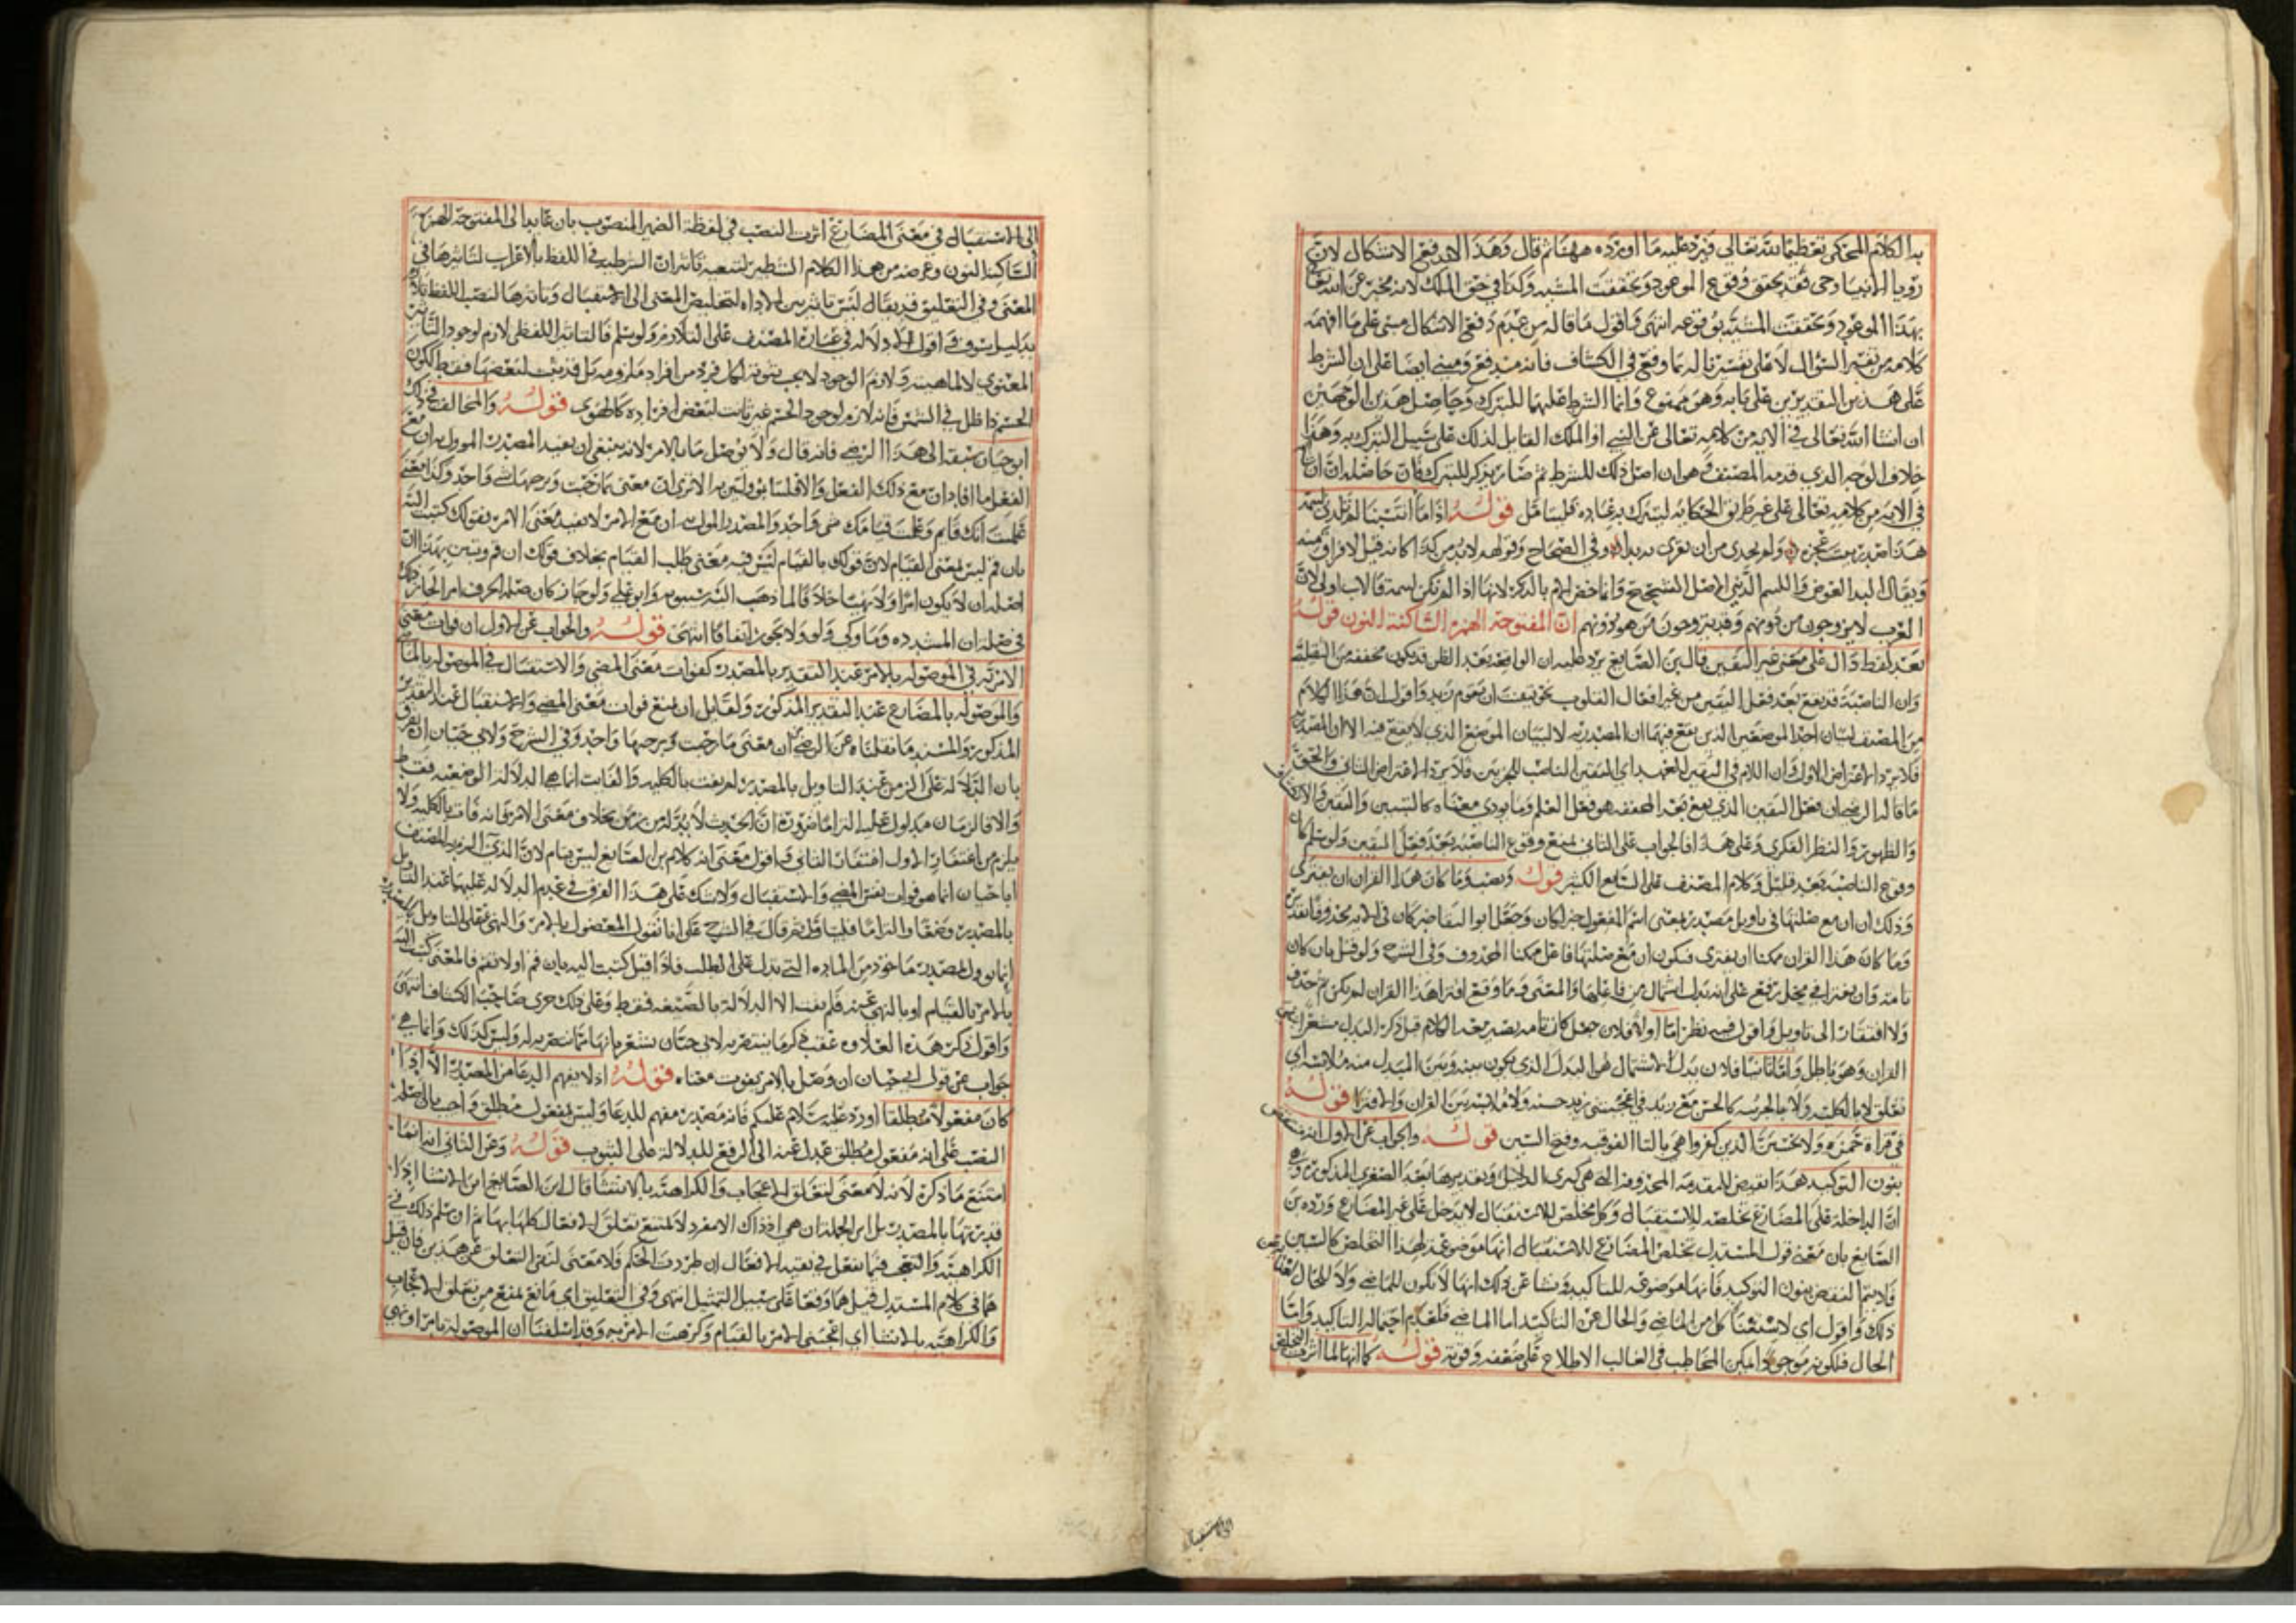 به الكلام المحكى تعظيما لله تعالى فيرد عليه ما اورده ههنا ثم قال وهذا لا يدفع الاشكال لان
رويا الانبيا وحى فقد تحقق وقوع الموعود وتحققت المشية وكذا في حق الملك لانه مخبر عن الله تعالى
بهذا الموعود وتحققت المشية بوقوعه انتهى واقول ما قاله من عدم دفع الاشكال مبنى على ما افهمه
كلامه من تفسير السؤال لا على تفسيرنا له بما وقع في الكشاف فانه مندفع ومبنى ايضا على ان الشرط
على هذين التقديرين على بابه وهو ممنوع وانما الشرط عليهما للتبرك وحاصل هذين الوجهين
ان انشا الله تعالى في الاية من كلامه تعالى عن النبي او الملك القايل لذلك على سبيل التبرك به وهذا
خلاف الوجه الذي قدمه المصنف وهو ان اصل ذلك للشرط ثم صار يذكر للتبرك فان حاصله ان
في الاية من كلامه تعالى على غير طريق الحكاية ليتبرك به عباده فليتامل قوله اذا ما انتسبنا لم تلدني لئيمة
هذا صدر بيت عجزه ولم تجدي من ان تقري به بدا وفي الصحاح وقولهم لا بد من كذا كانه قيل لا فراق منه
ويقال البد العوض واللئيم الدني الاصل الشحيح وانما خص الام بالذكر لانها اذا لم تكن لئيمة فالاب اولى لان
العرب لا يزوجون من دونهم وقد يتزوجون من هو دونهم ان المفتوحة الهمزة الساكنة النون قوله
بعد لفظ دال على معنى غير اليقين قال ابن الصايغ يرد عليه ان الواقعة بعد الظن قد تكون مخففة من الثقيلة
وان الناصبة قد تقع بعد فعل اليقين من غير افعال القلوب نحو تيقنت ان يقوم زيد واقول ان هذا الكلام
من المصنف لبيان احد الموضعين الذين تقع فيهما ان المصدرية لا لبيان الموضع الذي لا يقع فيه الا ان المصدرية
فلا يرد الاعتراض الاول وان اللام في اليقين للعهد اي اليقين الناصب للجزءين فلا يرد الاعتراض الثاني والحق
ما قاله الرضي ان فعل اليقين الذي يقع بعد المخففة هو فعل العلم وما يودي معناه كالتبيين واليقين والانكشاف
والظهور والنظر الفكري وعلى هذا فالجواب على الثاني لمنع وقوع الناصبة بعد فعل اليقين ولو سلم كان
وقوع الناصبة بعد قليل وكلام المصنف على الشايع الكثير قوله ونصب وما كان هذا القران ان يفترى
وذلك ان ان مع صلتها في تاويل مصدر بمعنى اسم المفعول خبر لكان وجعل ابو البقا خبر كان في الاية محذوفا تقديره
وما كان هذا القران ممكنا ان يفترى فيكون ان مع صلتها فاعل ممكنا المحذوف وفي الشرح ولو قيل بان كان
تامة وان يفترى في محل رفع على انه بدل اشتمال من فاعلها والمعنى وما وقع افترا هذا القران لم يكن ثم حذف
ولا افتقار الى تاويل واقول فيه نظر اما اولا فلان جعل كان تامة يصير معه الكلام قبل ذكر البدل مشعرا بنفي
القران وهو باطل واما ثانيا فلان بدل الاشتمال هو البدل الذي يكون بينه وبين المبدل منه ملابسة اي
تعلق لا بالكلية ولا بالجزئية كالحسن مع زيد في اعجبني زيد حسنه ولا ملابسة بين القران والافترا قوله
في قراة حمزة ولا تحسبن الذين كفروا هي بالتا الفوقية وفتح السين قوله والجواب عن الاول انه منتقض
بنون التوكيد هذا نقيض للمقدمة المحذوفة التي هي كبرى الدليل وتقديرها بعد الصغرى المذكورة وهي
ان الداخلة على المضارع تخلصه للاستقبال وكل مخلص للاستقبال لا يدخل على غير المضارع ورده ابن
الصايغ بان معنى قول المستدل تخلص المضارع للاستقبال انها موضوعة لهذا التخلص كالسين وسوف
ولا يتم النقض بنون التوكيد فانها موضوعة للتاكيد ونشا عن ذلك انها لا تكون للماضي ولا للحال
ذلك واقول اي لاستغنا كل من الماضي والحال عن التاكيد اما الماضي فلعدم احتماله التاكيد واما
الحال فلكونه موجودا امكن المخاطب في الغالب الاطلاع على ضعفه وقوته قوله كما انها لما اثرت التخليص
الى الاستقبال
الى الاستقبال في معنى المضارع اثرت النصب في لفظه الضمير المنصوب بان عايد الى المفتوحة الهمزة
الساكنة النون وغرضه من هذا الكلام التنظير لتشبيه تاثير ان الشرطية في اللفظ بالاعراب لتاثيرها في
المعنى وفي التعليق قد يقال ليس تاثير من الاداة لتخليص المعنى الى الاستقبال وتاثيرها لنصب اللفظ تلازم
بدليل سوف واقول لا دلالة في عبارة المصنف على التلازم ولو سلم فالتاثير اللفظي لازم لوجود التاثير
المعنوي لا لماهيته ولازم الوجود لا يجب ثبوته لكل فرد من افراد ملزومه بل قد يثبت لبعضها فقط لكون
الجسم ذا ظل في الشمس فانه لازم لوجود الجسم غير ثابت لبعض افراده كالهوى قوله والمخالف في ذلك
ابو حيان سبقه الى هذا الرضي فانه قال ولا يوصل ما بالامر لانه ينبغي ان يفيد المصدر الموول به ان مع
الفعل ما افاد ان مع ذلك الفعل والا فليسا مؤولين به الا ترى ان معنى بما رحبت وبرحبها شي واحد وكذا معنى
علمت انك قائم وعلمت قيامك شي واحد والمصدر الموول به ان مع الامر لا يفيد معنى الامر بقولك كتبت اليه
بان قم ليس بمعنى القيام لان قولك بالقيام ليس فيه معنى طلب القيام بخلاف قولك ان قم وتبين بهذا ان
اصله ان لا يكون امرا ولا نهيا خلافا لما ذهب اليه سيبويه وابو علي ولو جاز كان صلة الحرف امرا لجاز ذلك
في صلة ان المشددة وما وكي ولو ولا يجوز اتفاقا انتهى قوله والجواب عن الاول ان فوات معنى
الامرية في الموصولة بالامر عند التقدير بالمصدر كفوات معنى المضي والاستقبال في الموصولة بالماضي
والموصولة بالمضارع عند التقدير المذكور ولقايل ان يمنع فوات معنى المضي والاستقبال عند التقدير
المذكور والسند ما نقلناه عن الرضي ان معنى ما رحبت وبرحبها واحد وفي الشرح ولابي حيان ان يفرق
بان الدلالة على الزمن عند التاويل بالمصدر لم تفت بالكلية والفايت انما هي الدلالة الوضعية فقط
والا فالزمان مدلول عليه التزاما ضرورة ان الحدث لا بد له من زمن بخلاف معنى الامر فانه فات بالكلية ولا
يلزم من اغتفار الاول اغتفار الثاني واقول معنى انه كلام ابن الصايغ ليس بتام لان الذي الزم المصنف
ابا حيان انما هو فوات نفس المضي والاستقبال ولا شك على هذا الفرق في عدم الدلالة عليها عند التاويل
بالمصدر وضعا والتزاما فليتامل ثم قال في الشرح على انا نقول المفعول بالامر والنهي عند التاويل بالمصدر
انما يوول بمصدر ماخوذ من المادة التي تدل على الطلب فاذا قيل كتبت اليه بان قم او لا تقم فالمعنى كتبت اليه
بالامر بالقيام او بالنهي عنه فلم يفت الا الدلالة بالصيغة فقط وعلى ذلك جرى صاحب الكشاف انتهى
واقول ذكر هذه العلاوة عقب ذكر ما ينتصر به لابي حيان يشعر بانها مما ينتصر به له وليس كذلك وانما هي
جواب عن قول ابي حيان ان وصل بالامر يفوت معناه قوله اذ لا يفهم الدعا من المصدر الا اذا
كان مفعولا مطلقا اورد عليه سلام عليكم فانه مصدر مفهم للدعا وليس بمفعول مطلق واجب بان اصله
النصب على انه مفعول مطلق عدل عنه الى الرفع للدلالة على الثبوت قوله وعن الثاني انه انما
امتنع ما ذكره لانه لا معنى لتعلق الاعجاب والكراهية بالانشا قال ابن الصايغ اين الانشا اذا
قدرتها بالمصدر بل اين الجملة ان هي اذ ذاك الا مفرد لا يمتنع تعلق الافعال كلها بها ثم ان سلم ذلك في
الكراهية والتعجب فما تفعل في بقية الافعال ان طردت الحكم ولا معنى لنفي التعلق عن هذين فان قيل
هما في كلام المستدل قيل هما وقعا على سبيل التمثيل انتهى وفي التعليق اي مانع يمنع من تعلق الاعجاب
والكراهية بالانشا اي اعجبني الامر بالقيام وكرهت الامر به وقد اسلفنا ان الموصولة بامر او نهي